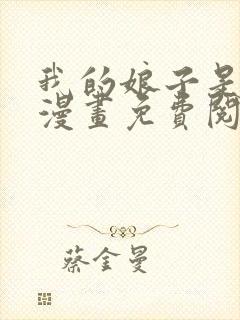 我的娘子是
漫畫免費閱
蔡金曼